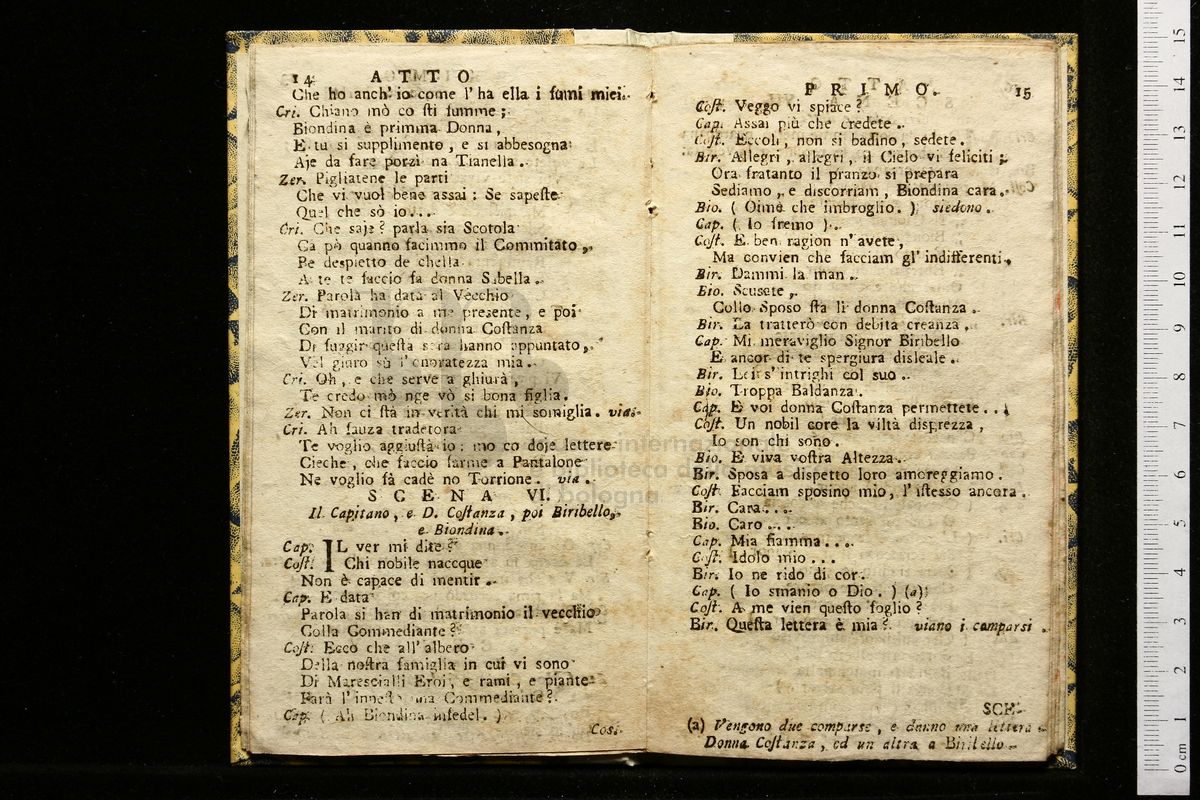 14 ATTO
Che ho anch' io come l' ha ella i fumi miei.
Cri. Chiano mò co sti fumme;
Biondina è primma Donna,
E tu si supplimento, e si abbesogna
Aje da fare porzì na Tianella.
Zer. Pigliatene le parti
Che vi vuol bene assai: Se sapeste
Quel che sò io...
Cri. Che saje? parla sia Scotola
Ca pò quanno facimmo il Commitato,
Pe despietto de chella
A te te faccio fà donna Sibella.
Zer. Parola ha data al Vecchio
Di matrimonio a me presente, e poi
Con il marito di donna Costanza
Di fuggir questa sera hanno appuntato,
Vel giuro sù l' onoratezza mia.
Cri. Oh, e che serve a ghiurà,
Te credo mò nge vò si bona figlia.
Zer. Non ci stà in verità chi mi somiglia. via.
Cri. Ah fauza tradetora
Te voglio aggiustà io: mo co doje lettere
Cieche, che faccio farme a Pantalone
Ne voglio fà cadè no Torrione. via.
SCENA VI.
Il Capitano, e D. Costanza, poi Biribello,
e Biondina.
Cap. IL ver mi dite?
Cost. Chi nobile nacque
Non è capace di mentir.
Cap. E data
Parola si han di matrimonio il vecchio
Colla Commediante?
Cost. Ecco che all' albero
Della nostra famiglia in cui vi sono
Di Marescialli Eroi, e rami, e piante
Farà l' innesto una Commediante?
Cap. (Ah Biondina infedel.)
Cos.
PRIMO. 15
Cost. Veggo vi spiace?
Cap. Assai più che credete.
Cost. Eccoli, non si badino, sedete.
Bir. Allegri, allegri, il Cielo vi feliciti;
Ora fratanto il pranzo si prepara
Sediamo, e discorriam, Biondina cara.
Bio. (Oimè che imbroglio.) siedono.
Cap. (Io fremo).
Cost. E ben ragion n' avete,
Ma convien che facciam gl' indifferenti.
Bir. Dammi la man.
Bio. Scusate,
Collo Sposo sta lì donna Costanza.
Bir. La tratterò con debita creanza.
Cap. Mi meraviglio Signor Biribello
E ancor di te spergiura disleale.
Bir. Lei s' intrighi col suo.
Bio. Troppa Baldanza.
Cap. E voi donna Costanza permettete...
Cost. Un nobil core la viltà disprezza,
Io son chi sono.
Bio. E viva vostra Altezza.
Bir. Sposa a dispetto loro amoreggiamo.
Cost. Facciam sposino mio, l' istesso ancora.
Bir. Cara...
Bio. Caro...
Cap. Mia fiamma...
Cost. Idolo mio...
Bir. Io ne rido di cor.
Cap. (Io smanio o Dio.) (a)
Cost. A me vien questo foglio?
Bir. Questa lettera è mia? viano i comparsi.
SCE-
(a) Vengono due comparse, e danno una lettera a
Donna Costanza, ed un altra a Biribello.
internaz
biblioteca della
bologna
15
14
13
12
11
10
9
8
7
6
5
4
3
2
1
0 cm